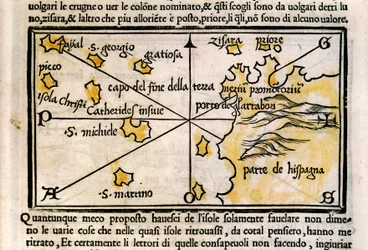 uolgari le crugne o uer le colōne nominato, & q̄sti scogli sono da uolgari detti lu
no, zisara, & laltro che piu allorīēte è posto, priore, li q̄li, nō sono di alcuno ualore.
fayal
S. georgio
gratiosa
zisara
priore
G
picco
Isola christi
capo del fine della terra
neriū promōtoriū
porto
Catherides insule
P
L
S. michiele
parte de hispagna
S. martino
A
O
Quantunque meco proposto hauesci de l'isole solamente fauelare non dime
no le uarie cose che nelle quasi isole ritrouassi, da cotal pensiero, hanno me
ritrato, Et certamente li lettori di quelle consapeuoli non facendo, ingiuriat